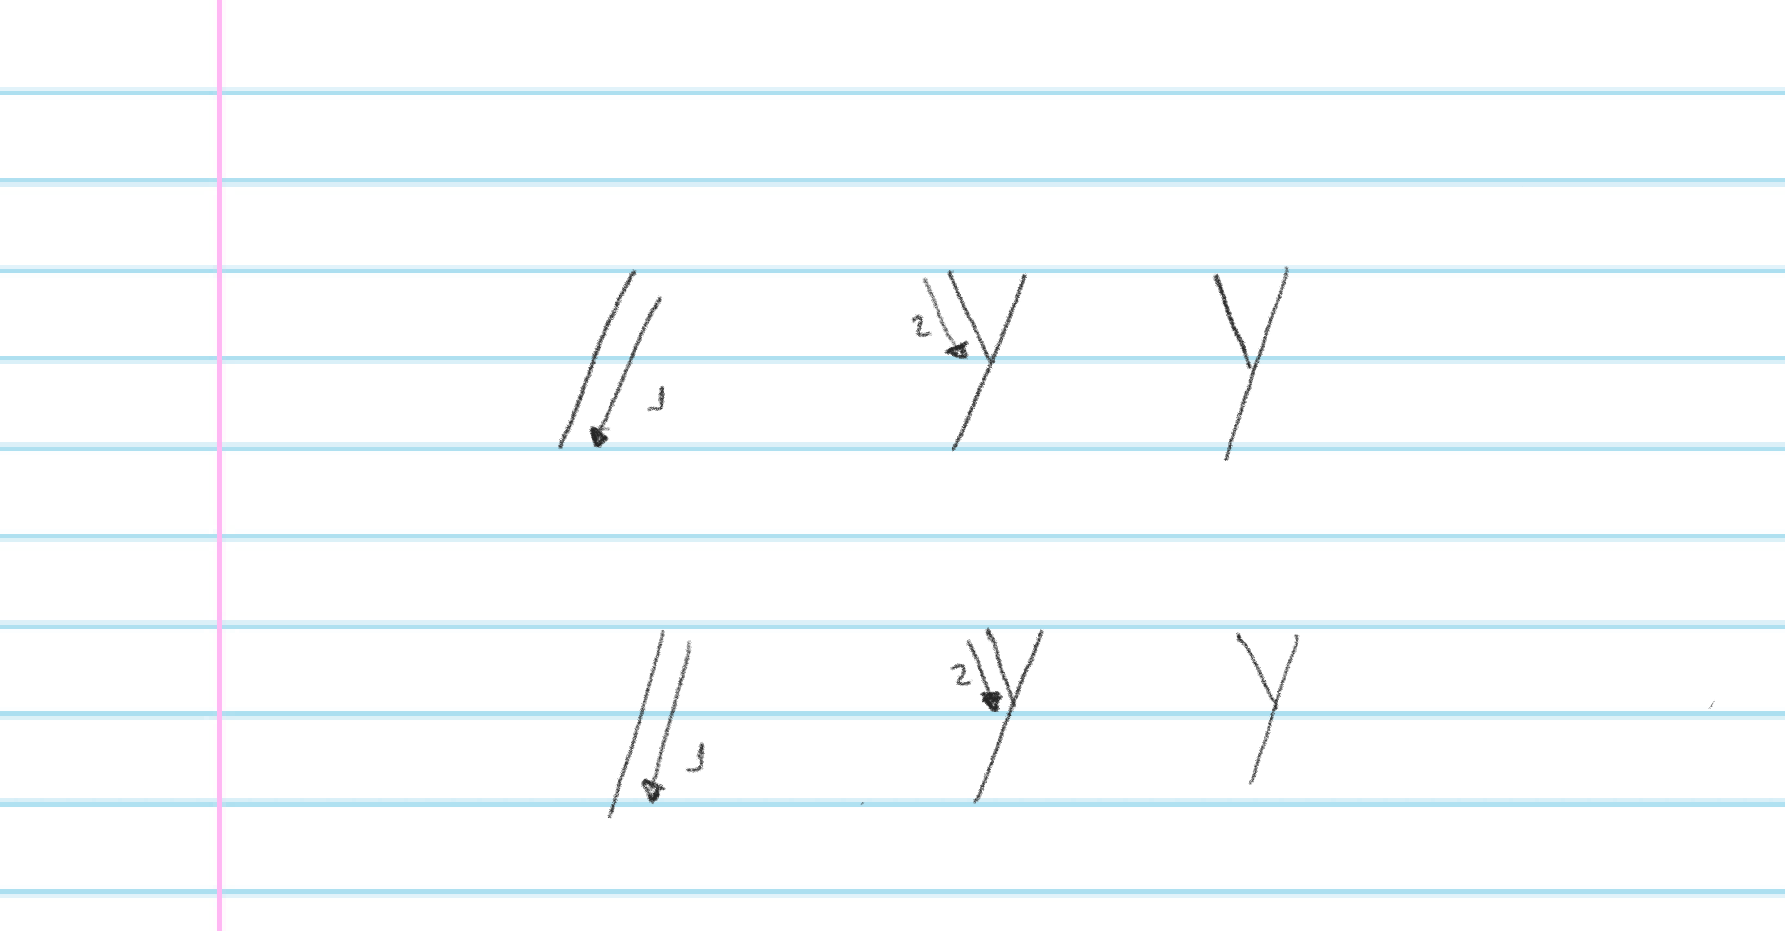 1 2 Y Y
1 2 Y Y